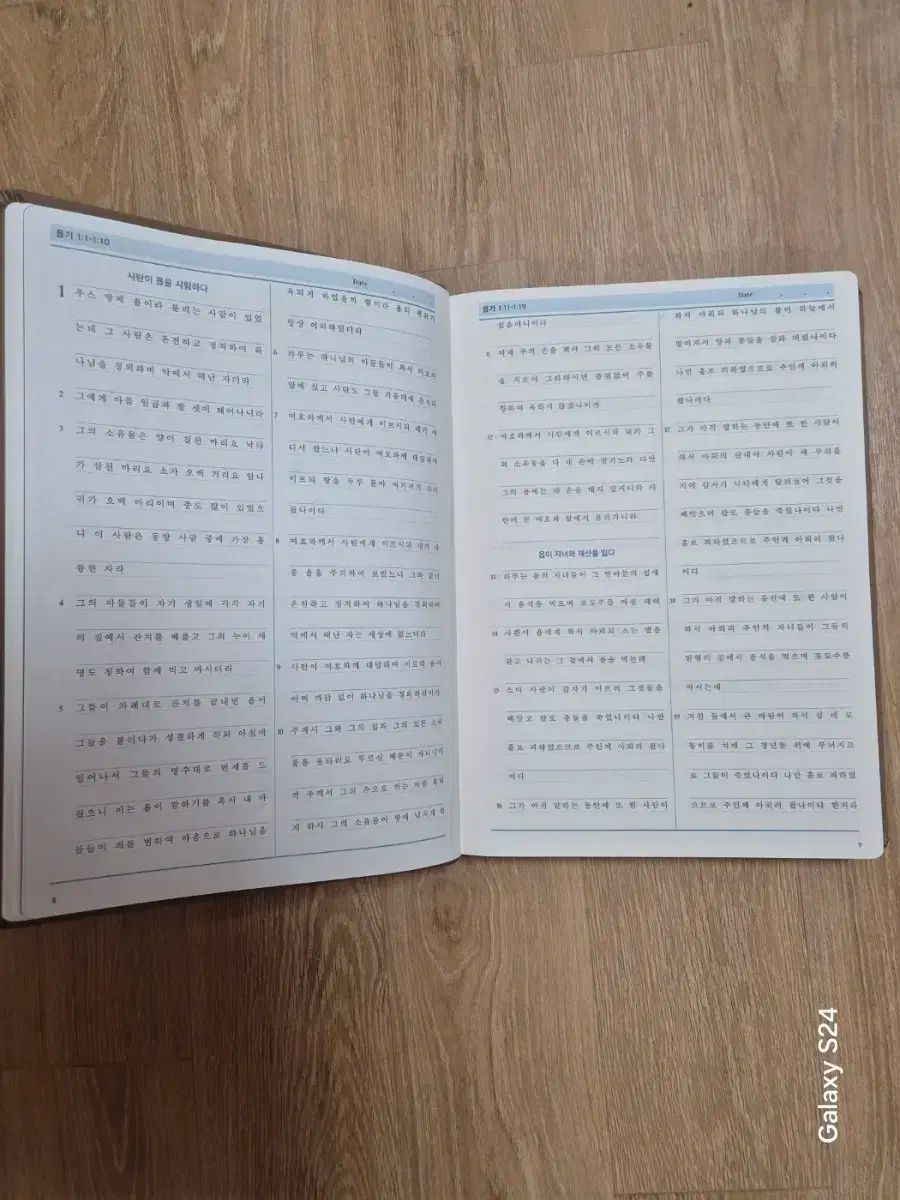 욥기 1:1-1:10
Date . . .
사탄이 욥을 시험하다
1 우스 땅에 욥이라 불리는 사람이 있었
는데 그 사람은 온전하고 정직하여 하
나님을 경외하며 악에서 떠난 자더라
2 그에게 아들 일곱과 딸 셋이 태어나니라
3 그의 소유물은 양이 칠천 마리요 낙타
가 삼천 마리요 소가 오백 겨리요 암나
귀가 오백 마리이며 종도 많이 있었으
니 이 사람은 동방 사람 중에 가장 훌
륭한 자라
4 그의 아들들이 자기 생일에 각각 자기
의 집에서 잔치를 베풀고 그의 누이 세
명도 청하여 함께 먹고 마시더라
5 그들이 차례대로 잔치를 끝내면 욥이
그들을 불러다가 성결하게 하되 아침에
일어나서 그들의 명수대로 번제를 드
렸으니 이는 욥이 말하기를 혹시 내 아
들들이 죄를 범하여 마음으로 하나님을
욕되게 하였을까 함이라 욥의 행위가
항상 이러하였더라
6 하루는 하나님의 아들들이 와서 여호와
앞에 섰고 사탄도 그들 가운데에 온지라
7 여호와께서 사탄에게 이르시되 네가 어
디서 왔느냐 사탄이 여호와께 대답하여
이르되 땅을 두루 돌아 여기저기 다녀
왔나이다
8 여호와께서 사탄에게 이르시되 네가 내
종 욥을 주의하여 보았느냐 그와 같이
온전하고 정직하여 하나님을 경외하며
악에서 떠난 자는 세상에 없느니라
9 사탄이 여호와께 대답하여 이르되 욥이
어찌 까닭 없이 하나님을 경외하리이까
10 주께서 그와 그의 집과 그의 모든 소유
물을 울타리로 두르심 때문이 아니니이
까 주께서 그의 손으로 하는 바를 복되
게 하사 그의 소유물이 땅에 넘치게 하
8
욥기 1:11-1:19
Date . . .
셨음이니이다
11 이제 주의 손을 펴서 그의 모든 소유물
을 치소서 그리하시면 틀림없이 주를
향하여 욕하지 않겠나이까
12 여호와께서 사탄에게 이르시되 내가 그
의 소유물을 다 네 손에 맡기노라 다만
그의 몸에는 네 손을 대지 말지니라 사
탄이 곧 여호와 앞에서 물러가니라
욥이 자녀와 재산을 잃다
13 하루는 욥의 자녀들이 그 맏아들의 집에
서 음식을 먹으며 포도주를 마실 때에
14 사환이 욥에게 와서 아뢰되 소는 밭을
갈고 나귀는 그 곁에서 풀을 먹는데
15 스바 사람이 갑자기 이르러 그것들을
빼앗고 칼로 종들을 죽였나이다 나만
홀로 피하였으므로 주인께 아뢰러 왔나
이다
16 그가 아직 말하는 동안에 또 한 사람이
와서 아뢰되 하나님의 불이 하늘에서
떨어져서 양과 종들을 살라 버렸나이다
나만 홀로 피하였으므로 주인께 아뢰러
왔나이다
17 그가 아직 말하는 동안에 또 한 사람이
와서 아뢰되 갈대아 사람이 세 무리를
지어 갑자기 낙타에게 달려들어 그것을
빼앗으며 칼로 종들을 죽였나이다 나만
홀로 피하였으므로 주인께 아뢰러 왔나
이다
18 그가 아직 말하는 동안에 또 한 사람이
와서 아뢰되 주인의 자녀들이 그들의
맏형의 집에서 음식을 먹으며 포도주를
마시는데
19 거친 들에서 큰 바람이 와서 집 네 모
퉁이를 치매 그 청년들 위에 무너지므
로 그들이 죽었나이다 나만 홀로 피하였
으므로 주인께 아뢰러 왔나이다 한지라
9
Galaxy S24